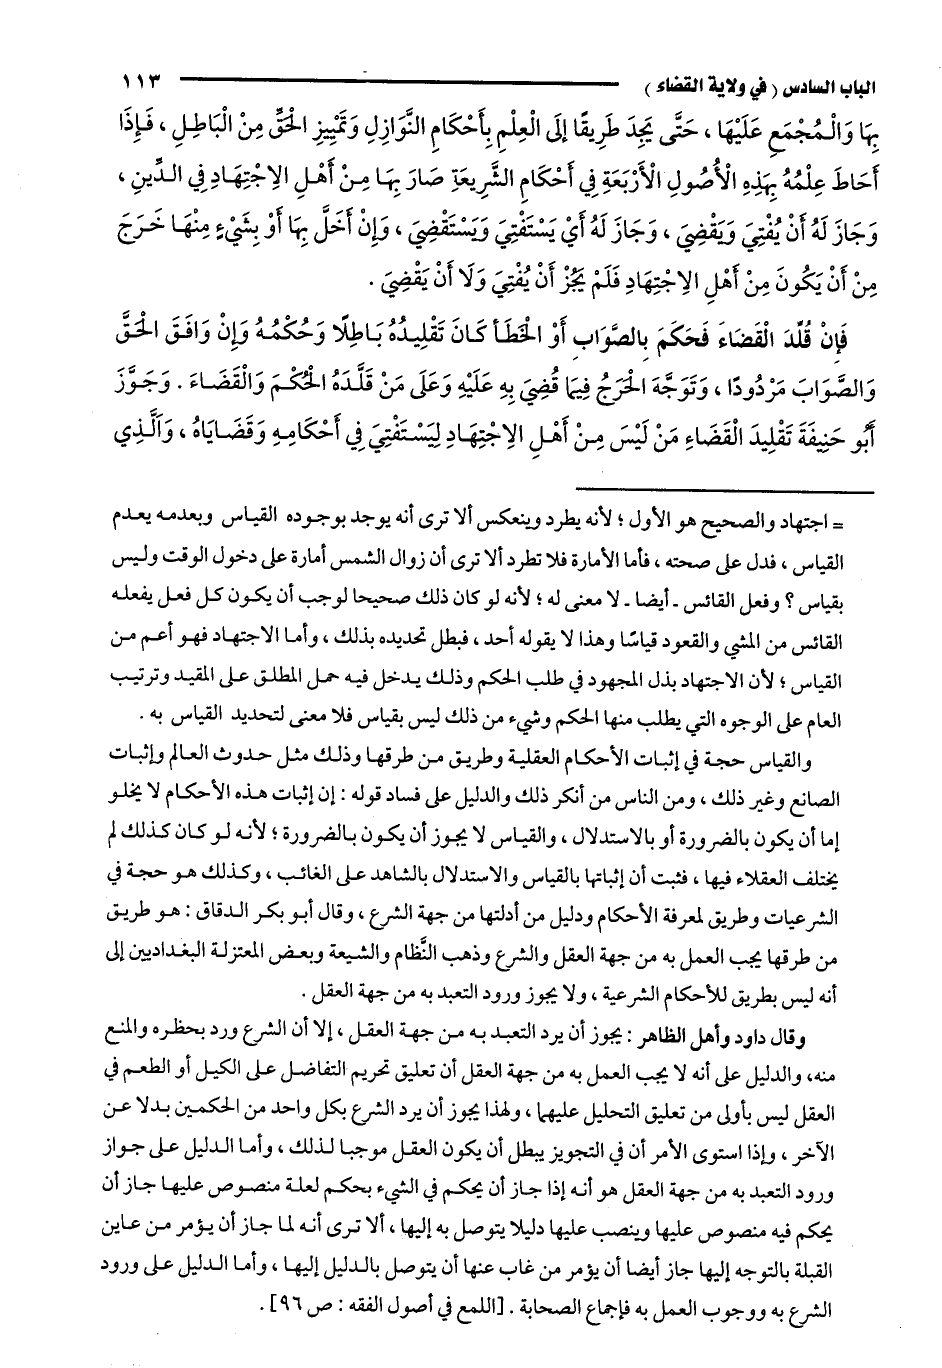 الباب السادس ( في ولاية القضاء ) ١١٣
بِهَا وَالْمُجْمَعِ عَلَيْهَا ، حَتَّى يَجِدَ طَرِيقًا إلَى الْعِلْمِ بِأَحْكَامِ النَّوَازِلِ وَتَمْيِيزِ الْحَقِّ مِنْ الْبَاطِلِ ، فَإِذَا
أَحَاطَ عِلْمُهُ بِهَذِهِ الْأُصُولِ الْأَرْبَعَةِ فِي أَحْكَامِ الشَّرِيعَةِ صَارَ بِهَا مِنْ أَهْلِ الِاجْتِهَادِ فِي الدِّينِ ،
وَجَازَ لَهُ أَنْ يُفْتِيَ وَيَقْضِيَ ، وَجَازَ لَهُ أَيْ يَسْتَفْتِيَ وَيَسْتَقْضِيَ ، وَإِنْ أَخَلَّ بِهَا أَوْ بِشَيْءٍ مِنْهَا خَرَجَ
مِنْ أَنْ يَكُونَ مِنْ أَهْلِ الِاجْتِهَادِ فَلَمْ يَجُزْ أَنْ يُفْتِيَ وَلَا أَنْ يَقْضِيَ .
فَإِنْ قُلِّدَ الْقَضَاءَ فَحَكَمَ بِالصَّوَابِ أَوْ الْخَطَأَ كَانَ تَقْلِيدُهُ بَاطِلًا وَحُكْمُهُ وَإِنْ وَافَقَ الْحَقَّ
وَالصَّوَابَ مَرْدُودًا ، وَتَوَجَّهَ الْحَرَجُ فِيمَا قُضِيَ بِهِ عَلَيْهِ وَعَلَى مَنْ قَلَّدَهُ الْحُكْمَ وَالْقَضَاءَ . وَجَوَّزَ
أَبُو حَنِيفَةَ تَقْلِيدَ الْقَضَاءِ مَنْ لَيْسَ مِنْ أَهْلِ الِاجْتِهَادِ لِيَسْتَفْتِيَ فِي أَحْكَامِهِ وَقَضَايَاهُ ، وَالَّذِي
= اجتهاد والصحيح هو الأول ؛ لأنه يطرد وينعكس ألا ترى أنه يوجد بوجوده القياس وبعدمه يعدم
القياس ، فدل على صحته ، فأما الأمارة فلا تطرد ألا ترى أن زوال الشمس أمارة على دخول الوقت وليس
بقياس ؟ وفعل القائس ـ أيضا ـ لا معنى له ؛ لأنه لو كان ذلك صحيحا لوجب أن يكون كل فعل يفعله
القائس من المشي والقعود قياسًا وهذا لا يقوله أحد ، فبطل تحديده بذلك ، وأما الاجتهاد فهو أعم من
القياس ؛ لأن الاجتهاد بذل المجهود في طلب الحكم وذلك يدخل فيه حمل المطلق على المقيد وترتيب
العام على الوجوه التي يطلب منها الحكم وشيء من ذلك ليس بقياس فلا معنى لتحديد القياس به .
والقياس حجة في إثبات الأحكام العقلية وطريق من طرقها وذلك مثل حدوث العالم وإثبات
الصانع وغير ذلك ، ومن الناس من أنكر ذلك والدليل على فساد قوله : إن إثبات هذه الأحكام لا يخلو
إما أن يكون بالضرورة أو بالاستدلال ، والقياس لا يجوز أن يكون بالضرورة ؛ لأنه لو كان كذلك لم
يختلف العقلاء فيها ، فثبت أن إثباتها بالقياس والاستدلال بالشاهد على الغائب ، وكذلك هو حجة في
الشرعيات وطريق لمعرفة الأحكام ودليل من أدلتها من جهة الشرع ، وقال أبو بكر الدقاق : هو طريق
من طرقها يجب العمل به من جهة العقل والشرع وذهب النَّظام والشيعة وبعض المعتزلة البغداديين إلى
أنه ليس بطريق للأحكام الشرعية ، ولا يجوز ورود التعبد به من جهة العقل .
وقال داود وأهل الظاهر : يجوز أن يرد التعبد به من جهة العقل ، إلا أن الشرع ورد بحظره والمنع
منه، والدليل على أنه لا يجب العمل به من جهة العقل أن تعليق تحريم التفاضل على الكيل أو الطعم في
العقل ليس بأولى من تعليق التحليل عليهما ، ولهذا يجوز أن يرد الشرع بكل واحد من الحكمين بدلا عن
الآخر ، وإذا استوى الأمر أن في التجويز يبطل أن يكون العقل موجبا لذلك ، وأما الدليل على جواز
ورود التعبد به من جهة العقل هو أنه إذا جاز أن يحكم في الشيء بحكم لعلة منصوص عليها جاز أن
يحكم فيه منصوص عليها وينصب عليها دليلا يتوصل به إليها ، ألا ترى أنه لما جاز أن يؤمر من عاين
القبلة بالتوجه إليها جاز أيضا أن يؤمر من غاب عنها أن يتوصل بالدليل إليها ، وأما الدليل على ورود
الشرع به ووجوب العمل به فإجماع الصحابة . [اللمع في أصول الفقه : ص ٩٦] .